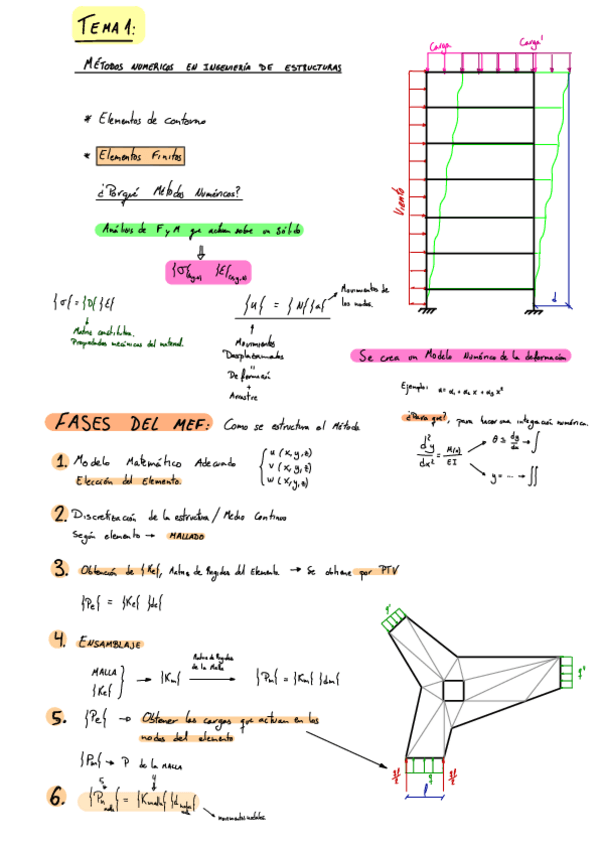 TEMA 1:
MÉTODOS NUMERICOS EN INGENIERÍA DE ESTRUCTURAS
* Elementos de contorno
* Elementos Finitos
¿Porqué Métodos Numéricos?
Análisis de F y M que actuan sobre un Sólido
{σ{(x,y,z) {ε{(x,y,z)
{σ{ = {D{ {ε{
Matriz constitutiva.
Propiedades mecánicas del material.
{u{ = {N{ {a{
Movimientos de
los nodos.
Movimientos
Desplazamientos
=
Deformación
+
Arrastre
Carga
Carga'
Viento
d
Se crea un Modelo Numérico de la deformación
Ejemplo: u = α₁ + α₂ x + α₃ x²
¿Para qué?, para hacer una integración numérica.
d²y/dx² = M(x)/EI
θ = dy/dx → ∫
y = ... → ∫∫
FASES DEL MEF: Como se estructura el Método
1. Modelo Matemático Adecuado
Elección del Elemento.
u (x,y,z)
v (x,y,z)
w (x,y,z)
2. Discretización de la estructura / Medio Continuo
Según elemento → MALLADO
3. Obtención de {Ke{, Matriz de Rigidez del Elemento → Se obtiene por PTV
{Pe{ = {Ke{ {de{
4. ENSAMBLAJE
MALLA
{Ke{
→ {Km{
Matriz de Rigidez
de la Malla
{Pm{ = {Km{ {dm{
5. {Pe{ → Obtener las cargas que actuan en los
nodos del elemento
{Pm{ → P de la MALLA
5
4
6. {Pm malla{ = {Kmalla{ {d nodos malla{
movimientos nodales
q'
q'
ql/2
q
ql/2
l